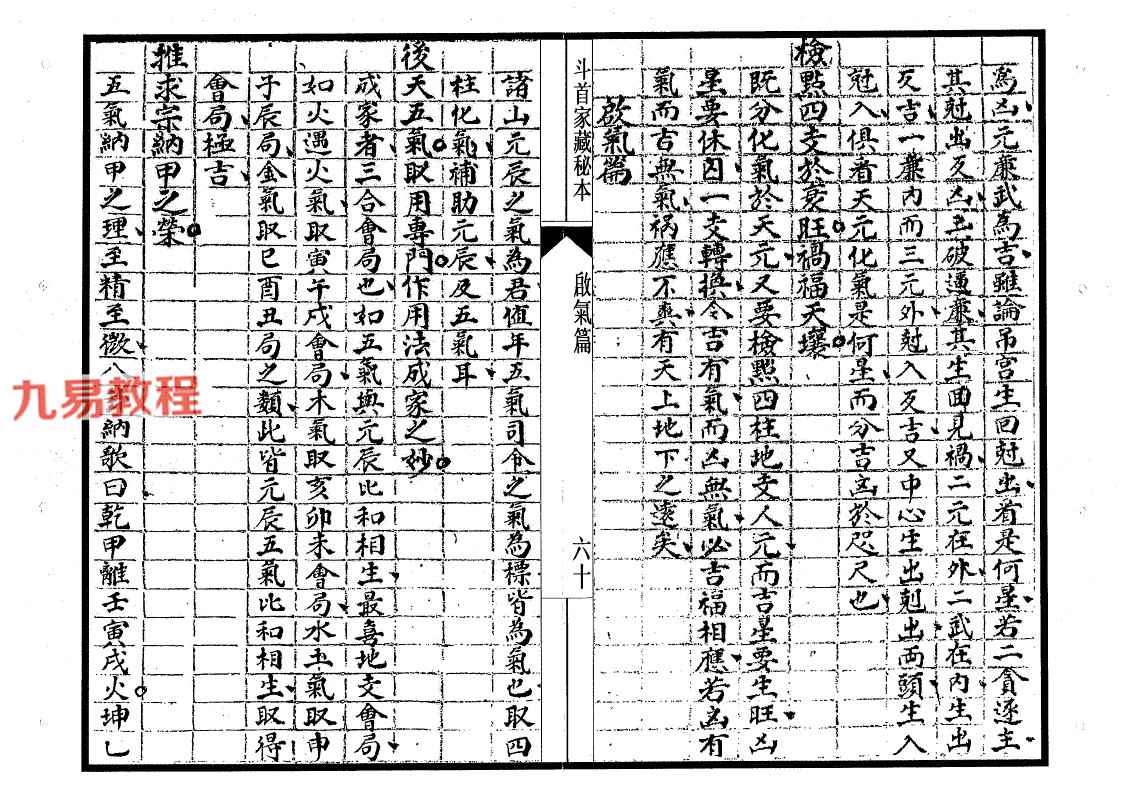 為凶元廉武為吉雖論吊宮生回尅出看是何星若二貪逐主
其尅出反凶主破逼廉其生囬見禍二元在外二武在內生出
反吉一廉內而三元外尅入反吉又中心生出剋出両頭生入
尅入俱看天元化氣是何星而分吉凶於咫尺也
檢點四支於衰旺禍福天壤
既分化氣於天元又要檢點四柱地支人元而吉星要生旺凶
星要休囚一支轉換令吉有氣而凶無氣必吉福相應若凶有
氣而吉無氣禍應不爽有天上地下之遠矣
啟氣篇
斗首家藏秘本
啟氣篇
六十
諸山元辰之氣為君值年五氣司令之氣為標皆為氣也取四
柱化氣補助元辰及五氣耳
後天五氣取用專門作用法成家之妙
成家者三合會局也如五氣與元辰比和相生最喜地支會局
如火遇火氣取寅午戌會局木氣取亥卯未會局水土氣取申
子辰局金氣取巳酉丑局之類此皆元辰五氣比和相生取得
會局極吉
推求宗納甲之榮
五氣納甲之理至精至微八納歌曰乾甲離壬寅戌火坤乙
九易教程